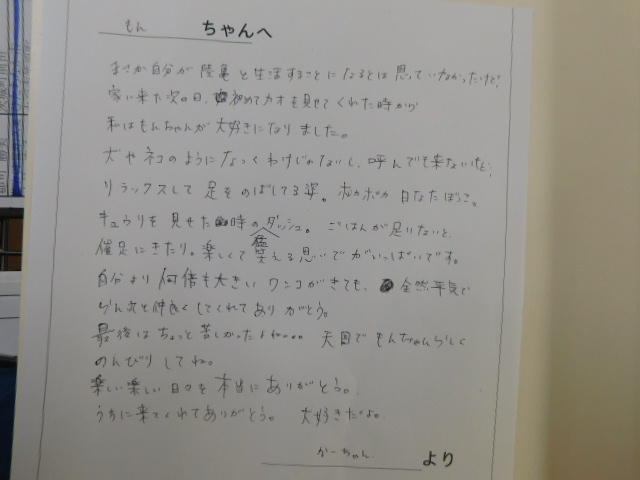 もん ちゃんへ
まさか自分が陸亀と生活することになるとは思っていなかったけど、
家に来た次の日、初めてカオを見せてくれた時から
私はもんちゃんが大好きになりました。
犬やネコのようになつくわけじゃないし、呼んでも来ないけど、
リラックスして足をのばしてる姿。ポカポカ日なたぼっこ。
キュウリを見せた時のダッシュ。ごはんが足りないと、
催足にきたり。楽しくて笑える思いでがいっぱいです。
自分より何倍も大きいワンコがきても、全然平気で
らん丸と仲良くしてくれてありがとう。
最後はちょっと苦しかったよね... 天国でもんちゃんらしく
のんびりしてね。
楽しい楽しい日々を本当にありがとう。
うちに来てくれてありがとう。 大好きだよ。
かーちゃん より